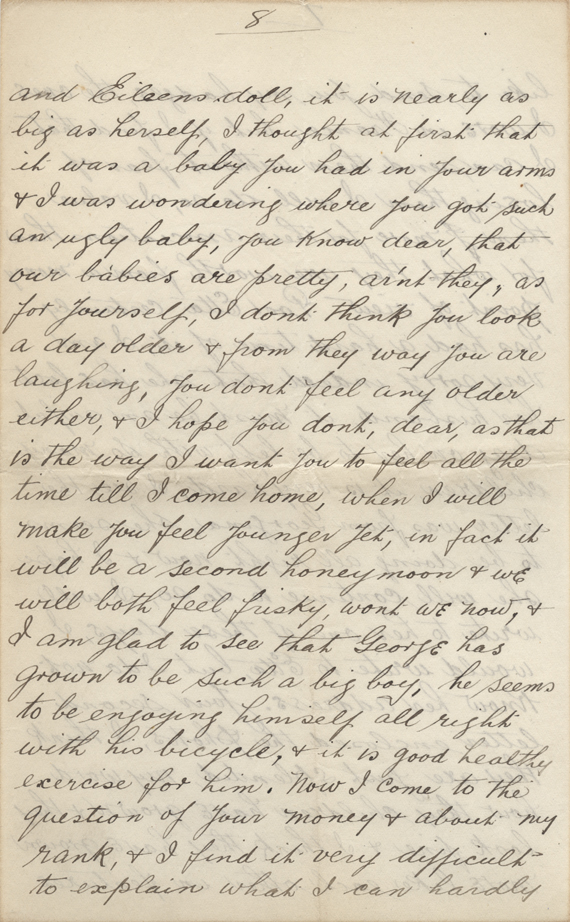 8
and Eileens doll, it is nearly as
big as herself, I thought at first that
it was a baby you had in your arms
& I was wondering where you got such
an ugly baby, you know dear, that
our babies are pretty, ar'nt they, as
for yourself, I dont think you look
a day older & from they way you are
laughing, you dont feel any older
either, & I hope you dont, dear, as that
is the way I want you to feel all the
time till I come home, when I will
make you feel younger yet, in fact it
will be a second honeymoon & we
will both feel frisky, wont we now, &
I am glad to see that George has
grown to be such a big boy, he seems
to be enjoying himself all right
with his bicycle, & it is good healthy
exercise for him. Now I come to the
question of your money & about my
rank, & I find it very difficult
to explain what I can hardly